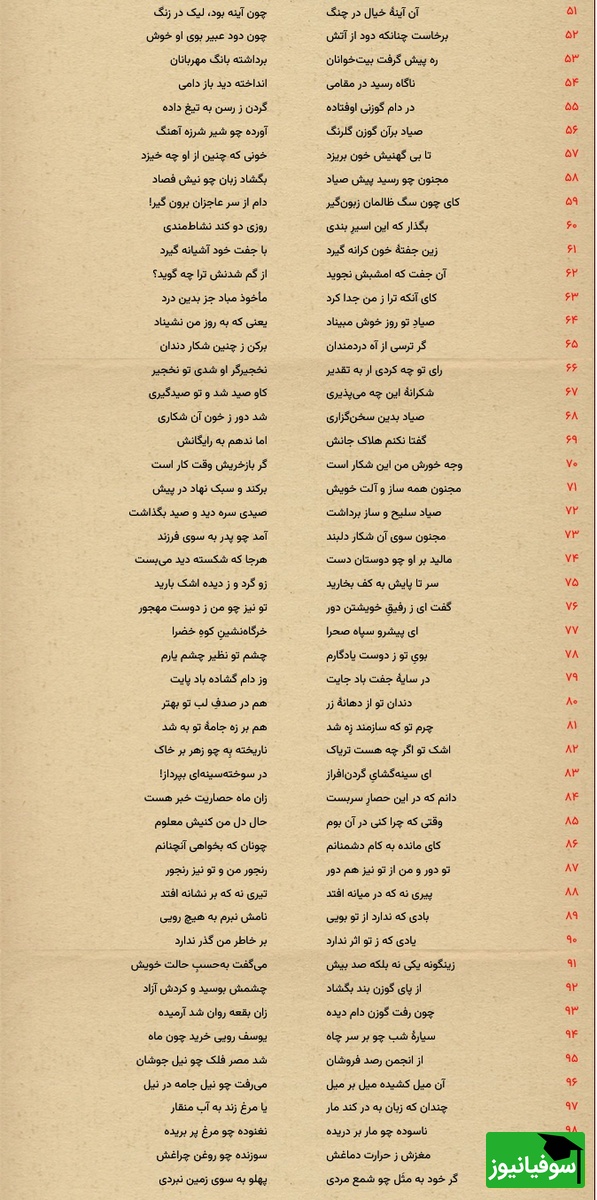 ۵۱ آن آینهٔ خیال در چنگ چون آینه بود، لیک در زنگ
۵۲ برخاست چنانکه دود از آتش چون دود عبیر بوی او خوش
۵۳ ره پیش گرفت بیت‌خوانان برداشته بانگ مهربانان
۵۴ ناگاه رسید در مقامی انداخته دید باز دامی
۵۵ در دام گوزنی اوفتاده گردن ز رسن به تیغ داده
۵۶ صیاد برآن گوزن گلرنگ آورده چو شیر شرزه آهنگ
۵۷ تا بی گهنیش خون بریزد خونی که چنین از او چه خیزد
۵۸ مجنون چو رسید پیش صیاد بگشاد زبان چو نیش فصاد
۵۹ کای چون سگ ظالمان زبون‌گیر دام از سر عاجزان برون گیر!
۶۰ بگذار که این اسیرِ بندی روزی دو کند نشاط‌مندی
۶۱ زین جفتهٔ خون کرانه گیرد با جفت خود آشیانه گیرد
۶۲ آن جفت که امشبش نجوید از گم شدنش ترا چه گوید؟
۶۳ کای آنکه ترا ز من جدا کرد مأخوذ مباد جز بدین درد
۶۴ صیادِ تو روز خوش مبیناد یعنی که به روز من نشیناد
۶۵ گر ترسی از آه دردمندان برکن ز چنین شکار دندان
۶۶ رای تو چه کردی ار به تقدیر نخجیرگر او شدی تو نخجیر
۶۷ شکرانهٔ این چه می‌پذیری کاو صید شد و تو صیدگیری
۶۸ صیاد بدین سخن‌گزاری شد دور ز خون آن شکاری
۶۹ گفتا نکنم هلاک جانش اما ندهم به رایگانش
۷۰ وجه خورش من این شکار است گر بازخریش وقت کار است
۷۱ مجنون همه ساز و آلت خویش برکند و سبک نهاد در پیش
۷۲ صیاد سلیح و ساز برداشت صیدی سره دید و صید بگذاشت
۷۳ مجنون سوی آن شکار دلبند آمد چو پدر به سوی فرزند
۷۴ مالید بر او چو دوستان دست هرجا که شکسته دید می‌بست
۷۵ سر تا پایش به کف بخارید زو گرد و ز دیده اشک بارید
۷۶ گفت ای ز رفیقِ خویشتن دور تو نیز چو من ز دوست مهجور
۷۷ ای پیشرو سپاه صحرا خرگاه‌نشینِ کوهِ خضرا
۷۸ بویِ تو ز دوست یادگارم چشم تو نظیر چشم یارم
۷۹ در سایهٔ جفت باد جایت وز دام گشاده باد پایت
۸۰ دندان تو از دهانهٔ زر هم در صدفِ لب تو بهتر
۸۱ چرم تو که سازمند زِه شد هم بر زه جامهٔ تو به شد
۸۲ اشک تو اگر چه هست تریاک ناریخته بِه چو زهر بر خاک
۸۳ ای سینه‌گشایِ گردن‌افراز در سوخته‌سینه‌ای بپرداز!
۸۴ دانم که در این حصارِ سربست زان ماه حصاریت خبر هست
۸۵ وقتی که چرا کنی در آن بوم حال دل من کنیش معلوم
۸۶ کای مانده به کام دشمنانم چونان که بخواهی آنچنانم
۸۷ تو دور و من از تو نیز هم دور رنجور من و تو نیز رنجور
۸۸ پیری نه که در میانه افتد تیری نه که بر نشانه افتد
۸۹ بادی که ندارد از تو بویی نامش نبرم به هیچ رویی
۹۰ یادی که ز تو اثر ندارد بر خاطر من گذر ندارد
۹۱ زینگونه یکی نه بلکه صد بیش می‌گفت به‌حسبِ حالت خویش
۹۲ از پای گوزن بند بگشاد چشمش بوسید و کردش آزاد
۹۳ چون رفت گوزن دام دیده زان بقعه روان شد آرمیده
۹۴ سیارهٔ شب چو بر سر چاه یوسف رویی خرید چون ماه
۹۵ از انجمن رصد فروشان شد مصر فلک چو نیل جوشان
۹۶ آن میل کشیده میل بر میل می‌رفت چو نیل جامه در نیل
۹۷ چندان که زبان به در کند مار یا مرغ زند به آب منقار
۹۸ ناسوده چو مار بر دریده نغنوده چو مرغ پر بریده
مغزش ز حرارت دماغش سوزنده چو روغن چراغش
گر خود به مثل چو شمع مردی پهلو به سوی زمین نبردی
سوفیانیوز